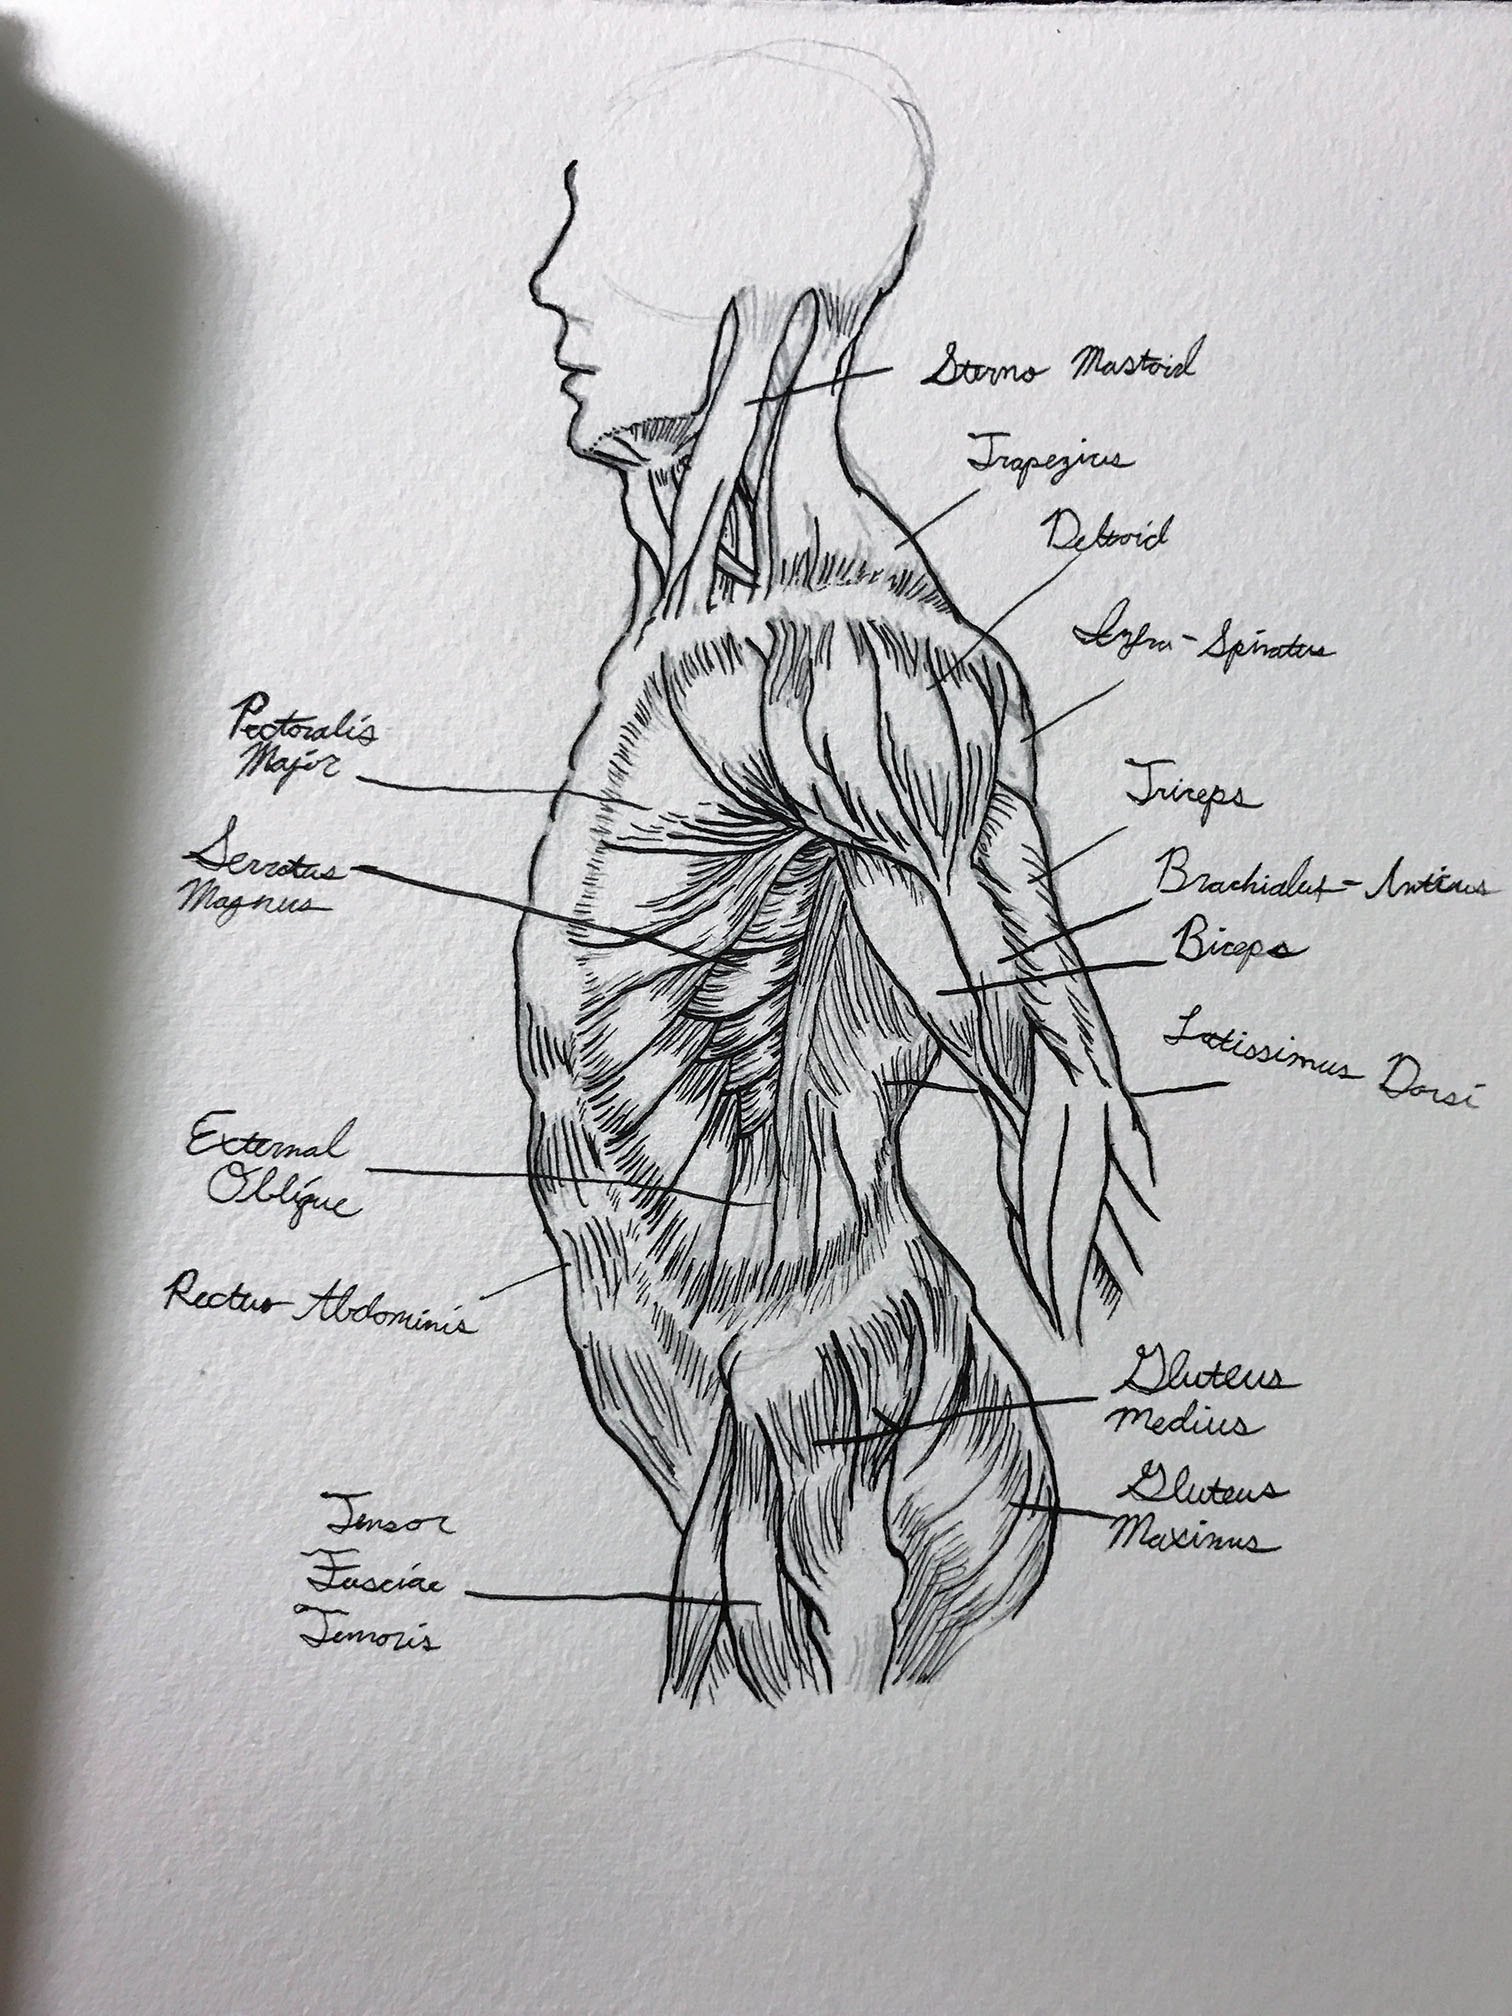 Sterno Mastoid
Trapezius
Deltoid
Infra-Spinatus
Pectoralis
Major
Triceps
Serratus
Magnus
Brachialis-Anticus
Biceps
Latissimus Dorsi
External
Oblique
Rectus Abdominis
Gluteus
Medius
Gluteus
Maximus
Tensor
Fasciae
Femoris